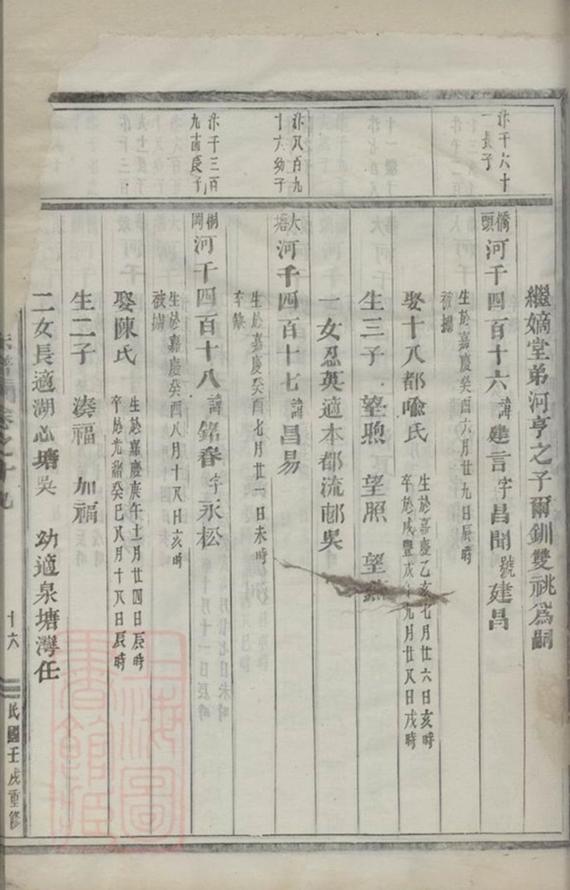 繼嫡堂弟河亨之子爾釧雙祧為嗣
汴千六十
一長子
橋頭
河千四百十六諱建言字昌聞號建昌
生於嘉慶癸酉六月廿九日辰時
被擄
娶十八都喻氏
生於嘉慶乙亥七月廿六日亥時
卒於咸豐戊午九月廿八日戌時
生三子 望煦 望照 望
一女忍英適本都流邨吳
汴八百九
十六幼子
大塘
河千四百十七諱昌易
生於嘉慶癸酉七月廿一日未時
卒缺
汴千三百
九十長子
桐岡
河千四百十八諱銘春字永松
生於嘉慶癸酉八月十八日亥時
被擄
娶陳氏
生於嘉慶庚午十二月廿四日辰時
卒於光緒癸巳八月十八日辰時
生二子 湊福 加福
二女長適湖泌塘吳 幼適泉塘灣任
譜 卷之十九
十六
民國壬戌重修
上海圖書館藏